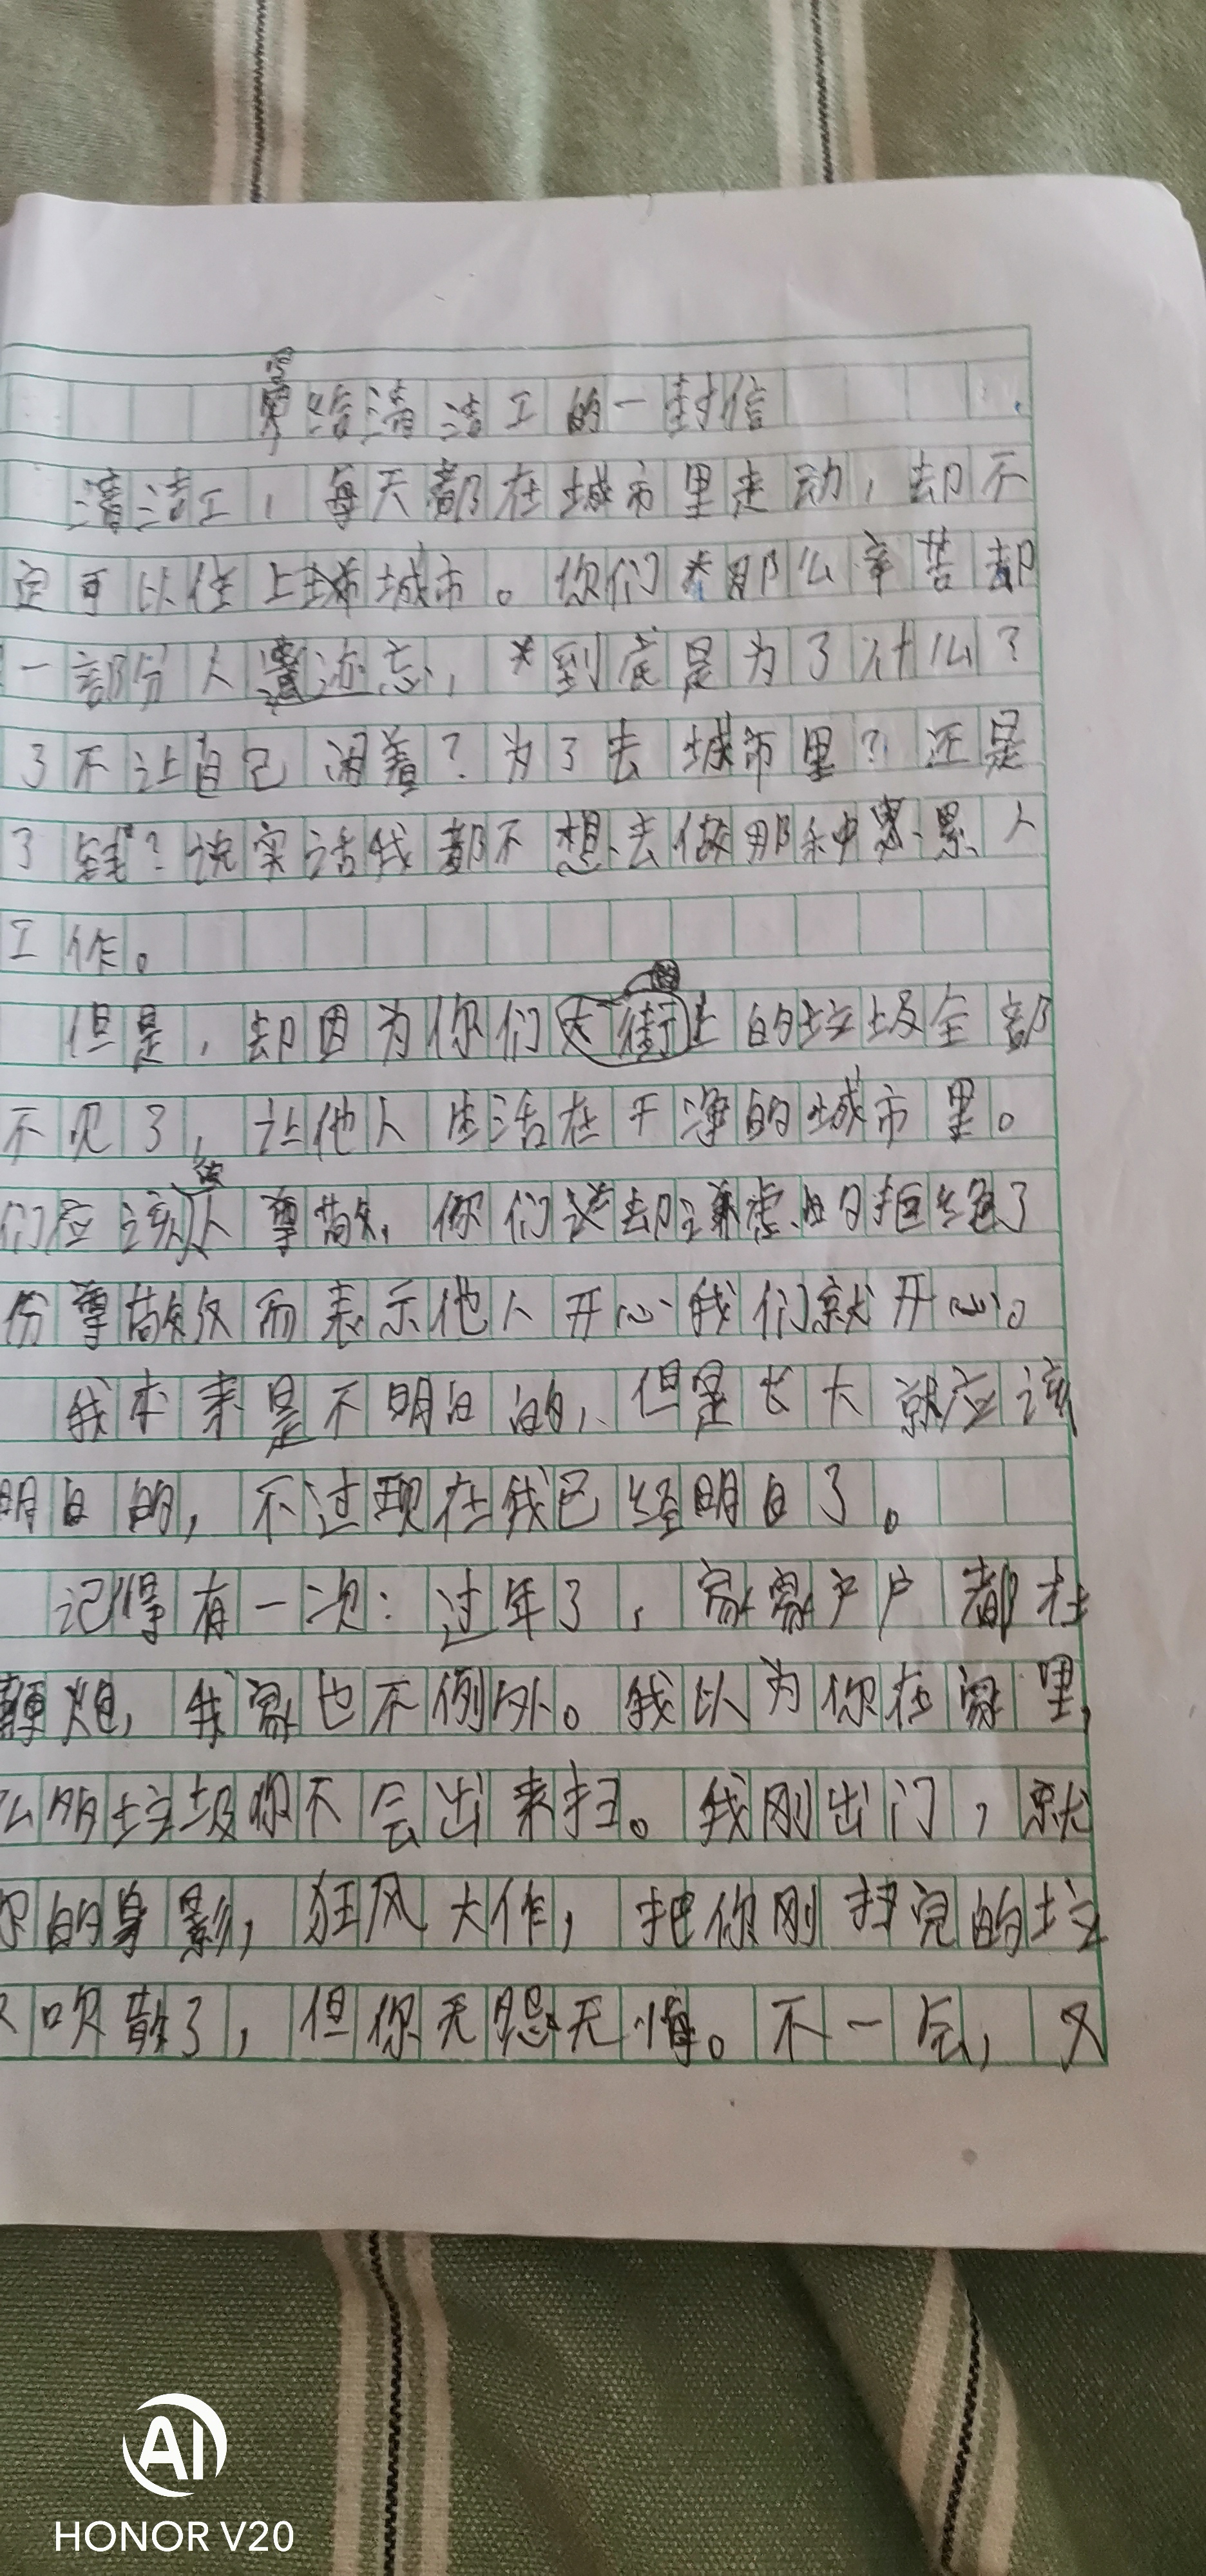 写给清洁工的一封信
清洁工，每天都在城市里走动，却不
定可以住上城市。你们那么辛苦却
一部分人遗忘，到底是为了什么？
了不让自己闲着？为了去城市里？还是
了钱？说实话我都不想去做那种累人
工作。
但是，却因为你们大街上的垃圾全部
不见了，让他人生活在干净的城市里。
们应该被人尊敬，你们却谦虚的拒绝了
份尊敬反而表示他人开心我们就开心。
我本来是不明白的，但是长大就应该
明白的，不过现在我已经明白了。
记得有一次：过年了，家家户户都在
鞭炮，我家也不例外。我以为你在家里，
么多垃圾你不会出来扫。我刚出门，就
你的身影，狂风大作，把你刚扫完的垃
又吹散了，但你无怨无悔。不一会，又
AI
HONOR V20